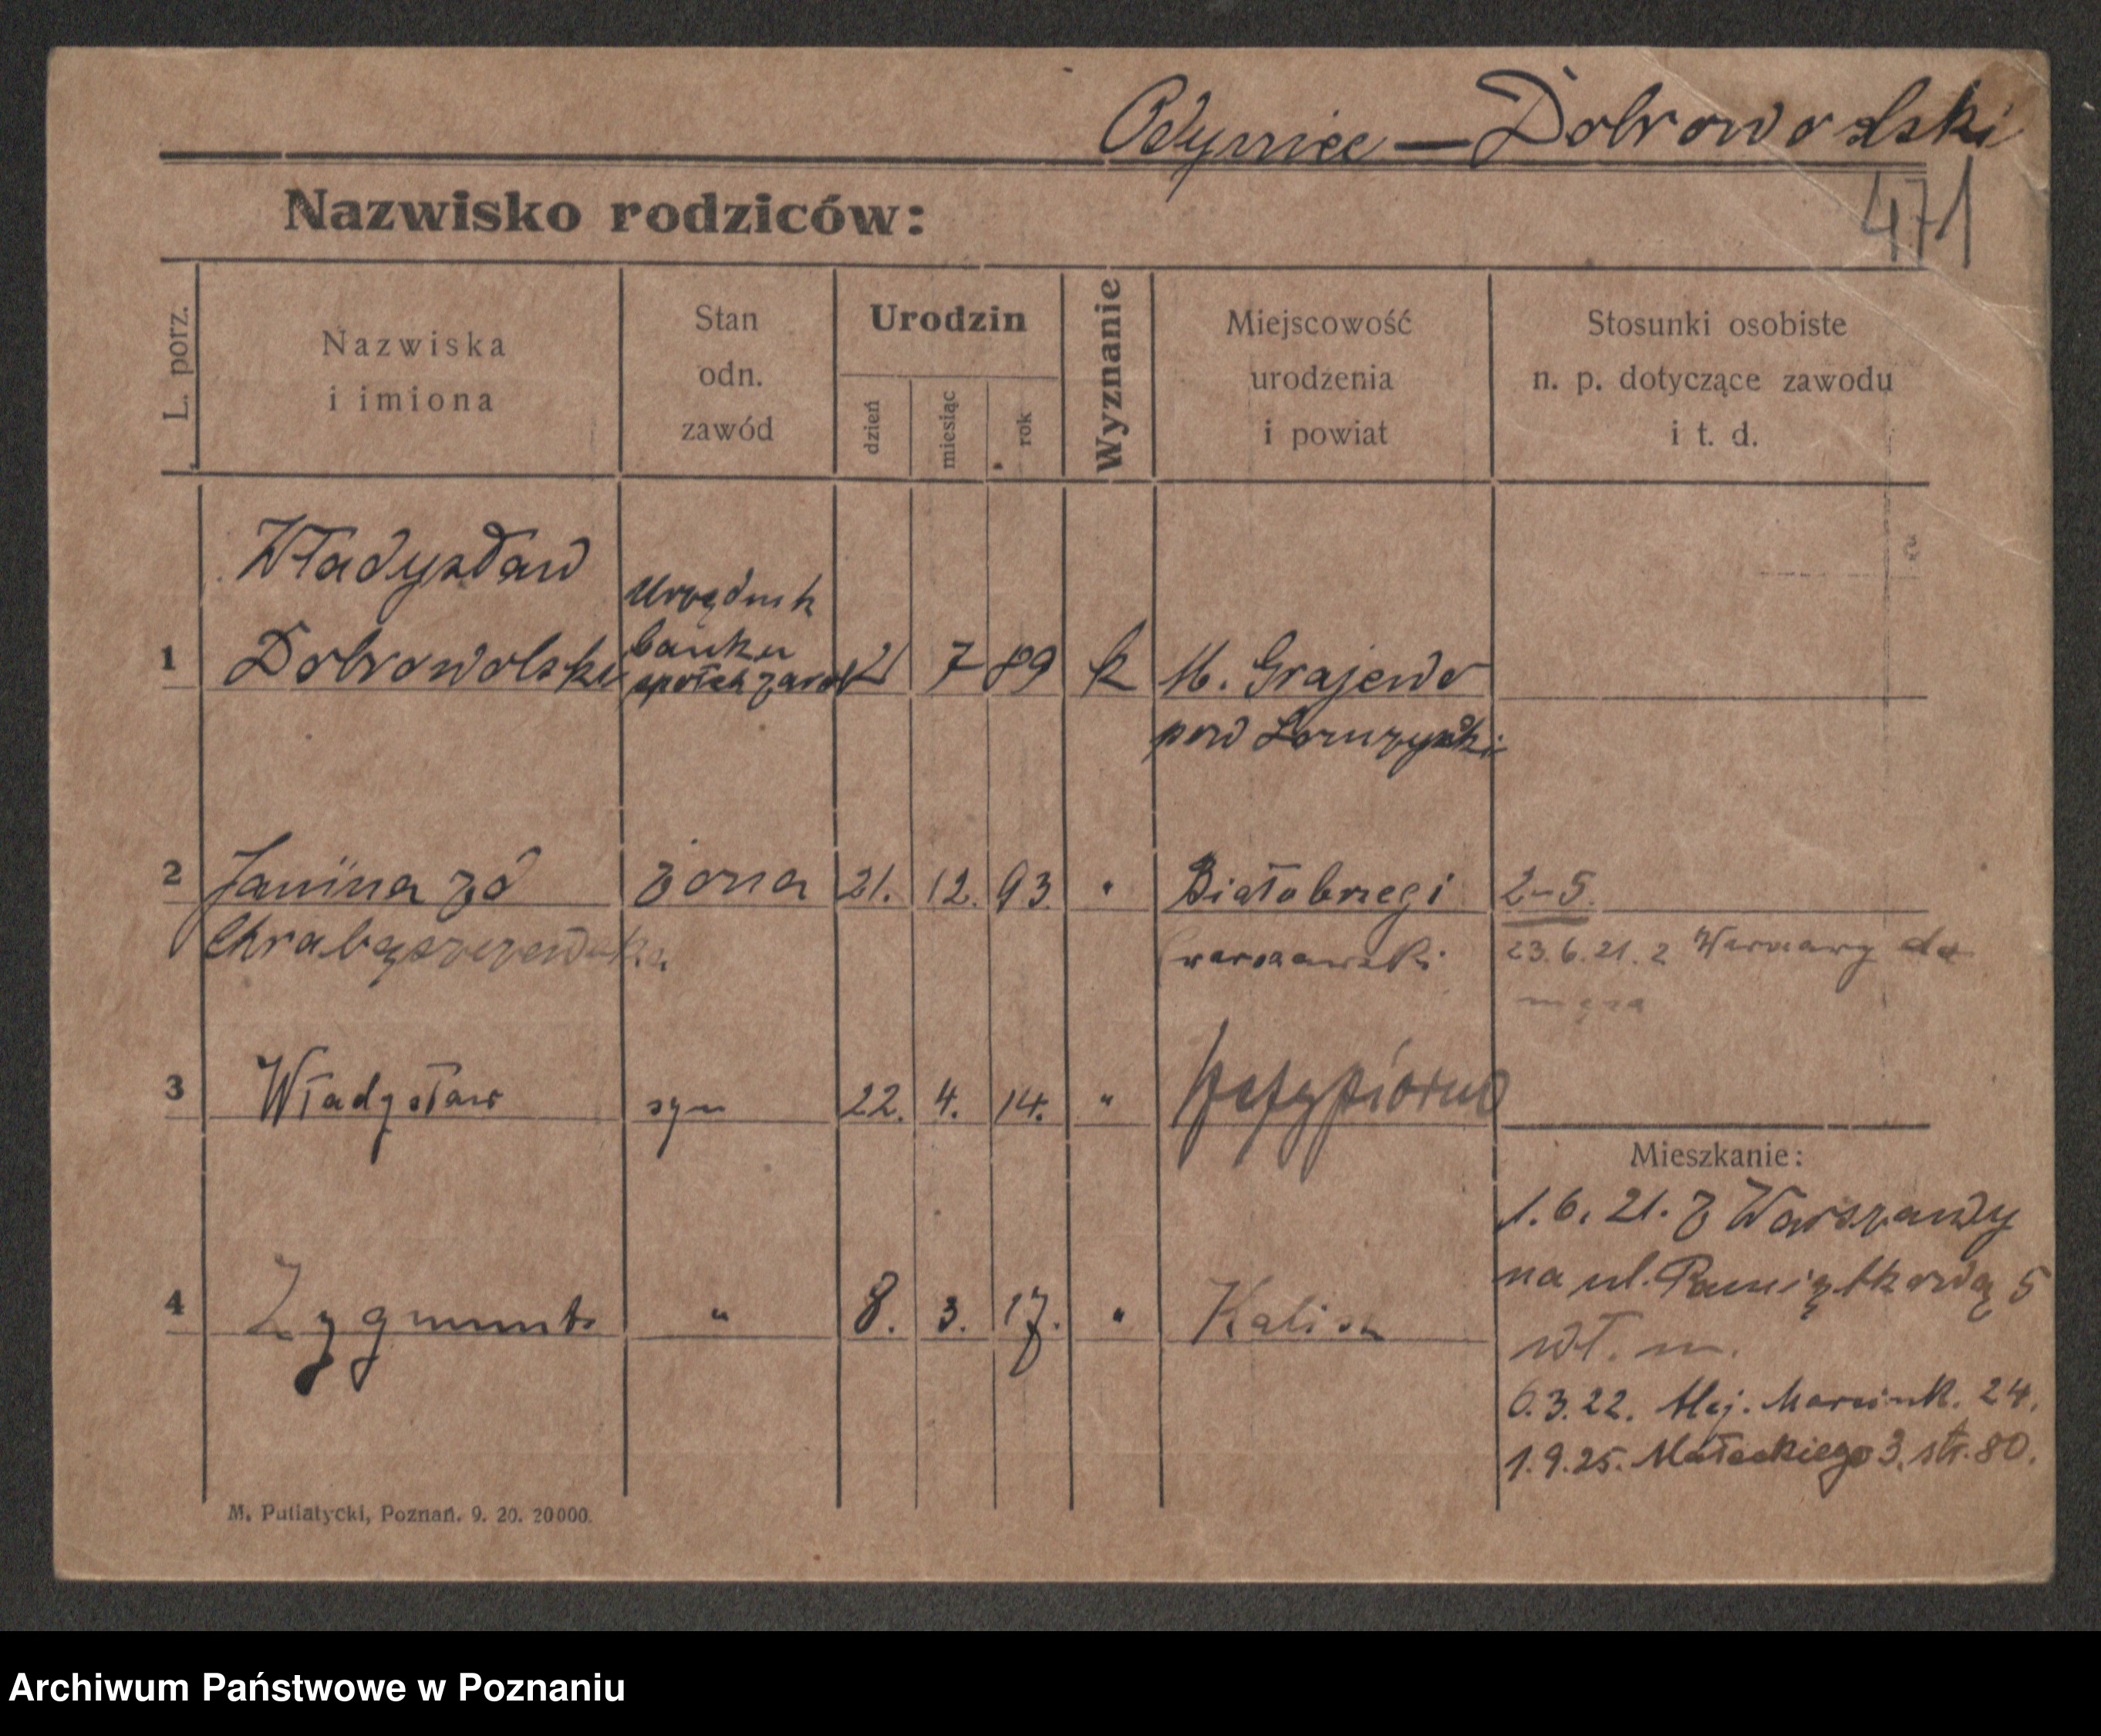 Odyniec — Dobrowolski
471
Nazwisko rodziców:
L. porz.
Nazwiska
i imiona
Stan
odn.
zawód
Urodzin
dzień
miesiąc
rok
Wyznanie
Miejscowość
urodzenia
i powiat
Stosunki osobiste
n. p. dotyczące zawodu
i t. d.
Władysław
urzędnik
banku
1 Dobrowolski 2 7 89 k M. Grajewo
pow Łomzyński
2 Janina zd żona 21. 12. 93. " Białobrzegi 2-5.
warszawski 23.6.21. z Warszawy do
męża
3 Władysław syn 22. 4. 14. "
Mieszkanie:
1.6.21. z Warszawy
na ul. Pamiątkową 5
4 Zygmunt " 8. 3. 17. " Kalisz
wł. m.
6.3.22. Alej. Marcink. 24.
1.9.25. Małeckiego 3. str. 80.
M. Putiatycki, Poznań. 9. 20. 20000.
Archiwum Państwowe w Poznaniu